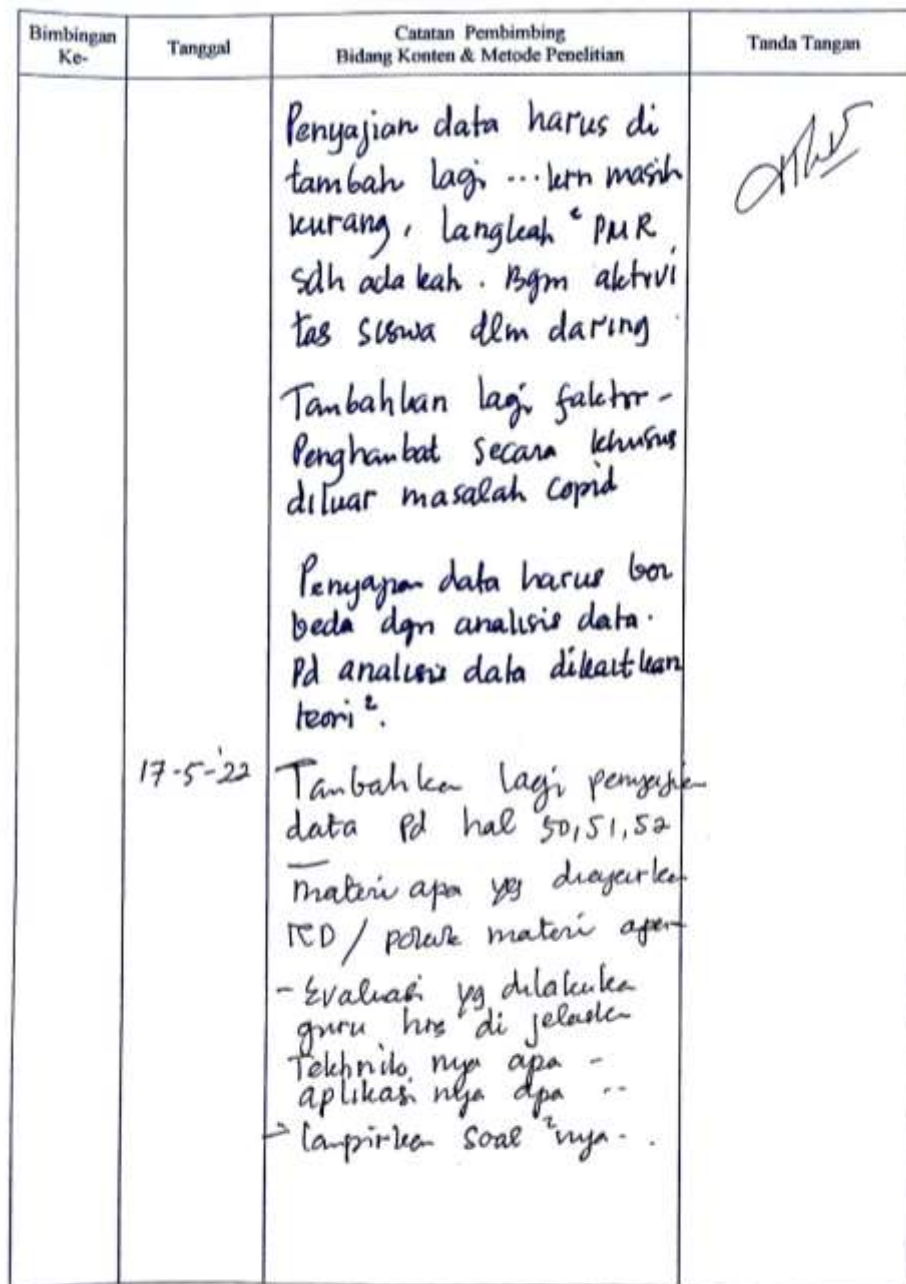 Bimbingan Ke-
Tanggal
Catatan Pembimbing
Bidang Konten & Metode Penelitian
Tanda Tangan
Penyajian data harus di
tambah lagi ... krn masih
kurang, langkah ² PMR
sdh ada kah. Bgm aktivi
tas siswa dlm daring
Tambahkan lagi faktor-
Penghambat secara khusus
diluar masalah copid
Penyajian data harus ber
beda dgn analisis data.
Pd analisis data dikaitkan
teori ².
17-5-'22
Tambahkan lagi penyajian
data pd hal 50, 51, 52
materi apa yg diajarkan
KD / pokok materi apa
- Evaluasi yg dilakukan
guru hrs di jelaskan
Tekhnik nya apa -
aplikasi nya apa ..
> lampirkan soal ² nya - .